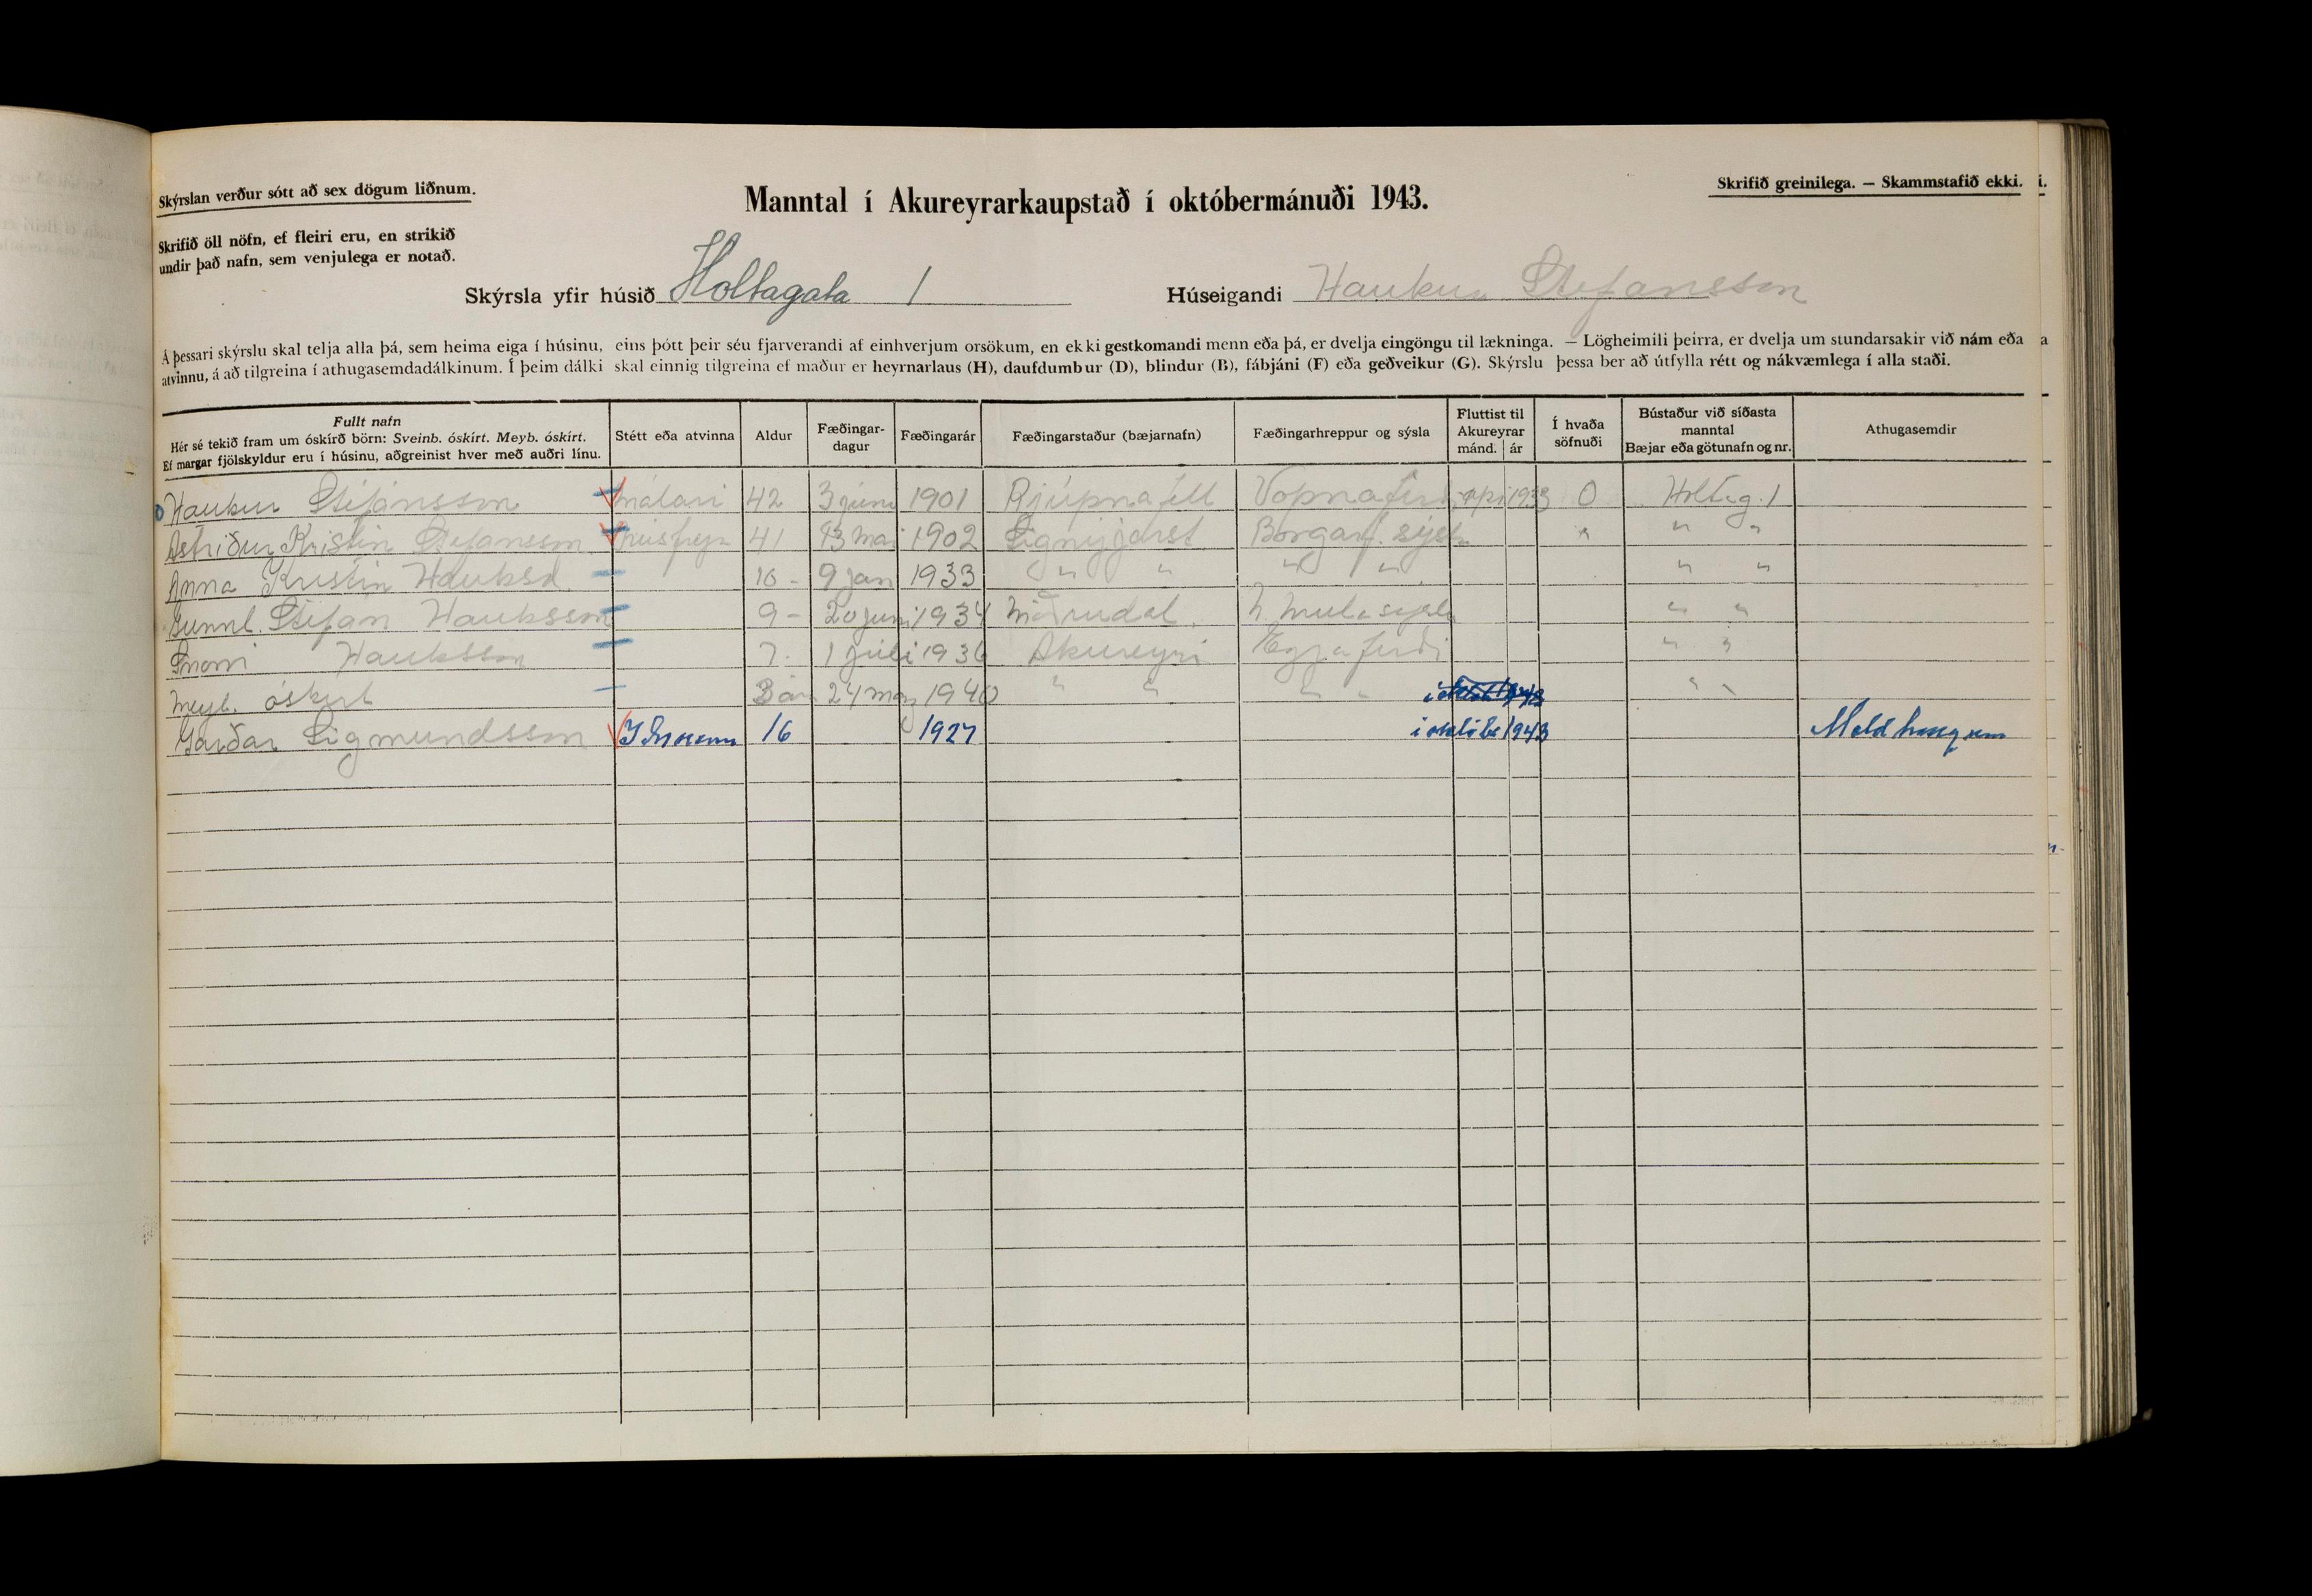 Skýrslan verður sótt að sex dögum liðnum.
Skrifið öll nöfn, ef fleiri eru, en strikið
undir það nafn, sem venjulega er notað.
Manntal í Akureyrarkaupstað í októbermánuði 1943.
Skrifið greinilega. — Skammstafið ekki.
Skýrsla yfir húsið Holtagata 1 Húseigandi Haukur Stefansson
Á þessari skýrslu skal telja alla þá, sem heima eiga í húsinu, eins þótt þeir séu fjarverandi af einhverjum orsökum, en ekki gestkomandi menn eða þá, er dvelja eingöngu til lækninga. — Lögheimili þeirra, er dvelja um stundarsakir við nám eða
atvinnu, á að tilgreina í athugasemdadálkinum. Í þeim dálki skal einnig tilgreina ef maður er heyrnarlaus (H), daufdumbur (D), blindur (B), fábjáni (F) eða geðveikur (G). Skýrslu þessa ber að útfylla rétt og nákvæmlega í alla staði.
Fullt nafn
Hér sé tekið fram um óskírð börn: Sveinb. óskírt. Meyb. óskírt.
Ef margar fjölskyldur eru í húsinu, aðgreinist hver með auðri línu.
Stétt eða atvinna
Aldur
Fæðingar-
dagur
Fæðingarár
Fæðingarstaður (bæjarnafn)
Fæðingarhreppur og sýsla
Fluttist til
Akureyrar
mánd. ár
Í hvaða
söfnuði
Bústaður við síðasta
manntal
Bæjar eða götunafn og nr.
Athugasemdir
Haukur Stefánsson málari 42 3 júní 1901 Rjúpnafell Vopnafirði apr 1933 O Holtag. 1
Astriður Kristín Stefansson 41 13 mai 1902 Borgarf. sýsla " " "
Anna Kristín Hauksd. 10 - 9 jan 1933 " " " " " "
Gunnl. Stefan Hauksson 9 - 20 juni 1934 Möðrudal N Mulasysla " "
Snorri Hauksson 7 - 1 júlí 1936 Akureyri Eyjafirði " "
Meyb. óskírt 3 ár 24 maj 1940 " " " " " "
Garðar Sigmundsson 16 1927 í október 1943